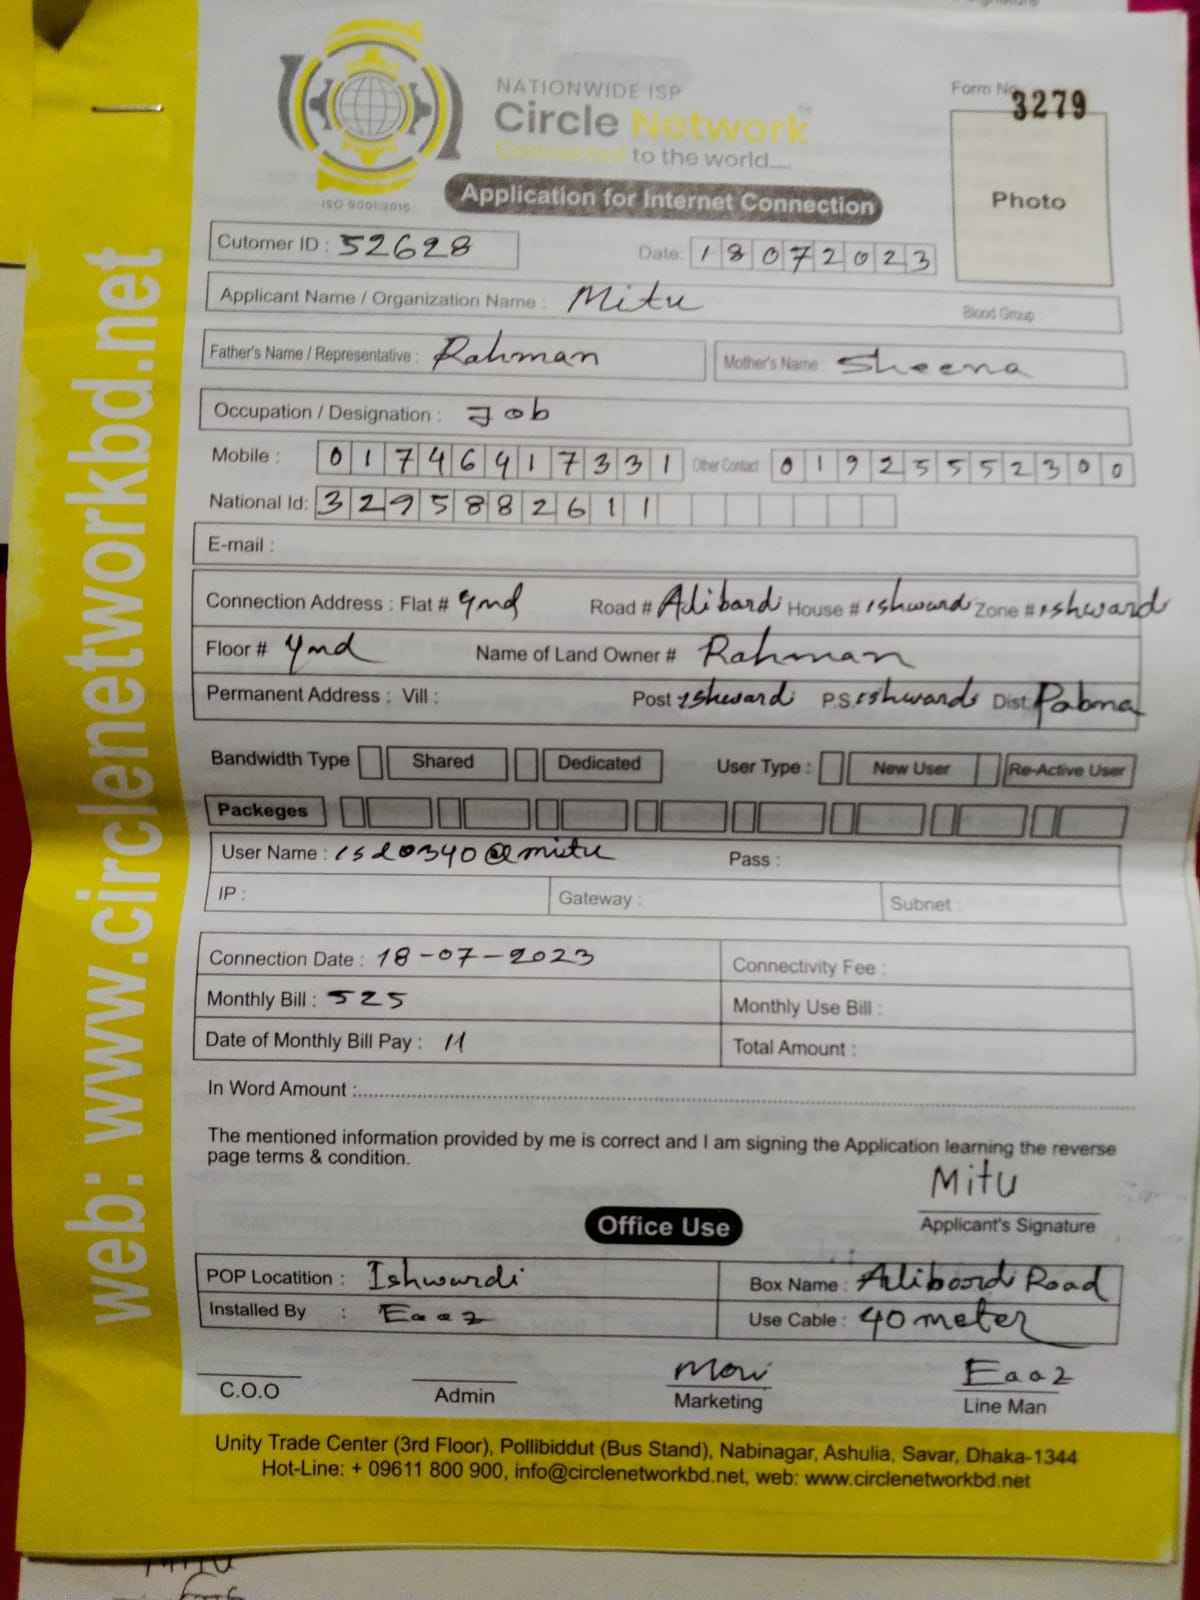 NATIONWIDE ISP
Circle Network
Connected to the world.....
ISO 9001:2015
Form No
3279
Photo
Application for Internet Connection
Cutomer ID : 52628 Date: 18072023
Applicant Name / Organization Name : Mitu Blood Group
Father's Name / Representative : Rahman Mother's Name : Sheena
Occupation / Designation : Job
Mobile : 01746417331 Other Contact 01925552300
National Id: 3295882611
E-mail :
Connection Address : Flat # Road # House # Zone #
Floor # Name of Land Owner # Rahman
Permanent Address : Vill : Post P.S. Dist: Pabna
Bandwidth Type Shared Dedicated User Type : New User Re-Active User
Packeges
User Name : isd0340@mitu Pass :
IP : Gateway : Subnet :
Connection Date : 18-07-2023 Connectivity Fee :
Monthly Bill : 525 Monthly Use Bill :
Date of Monthly Bill Pay : 11 Total Amount :
In Word Amount :
The mentioned information provided by me is correct and I am signing the Application learning the reverse
page terms & condition.
Mitu
Applicant's Signature
Office Use
POP Locatition : Ishwardi Box Name : Road
Installed By : Use Cable : 40 meter
C.O.O Admin Marketing Line Man
Unity Trade Center (3rd Floor), Pollibiddut (Bus Stand), Nabinagar, Ashulia, Savar, Dhaka-1344
Hot-Line: + 09611 800 900, info@circlenetworkbd.net, web: www.circlenetworkbd.net
web: www.circlenetworkbd.net